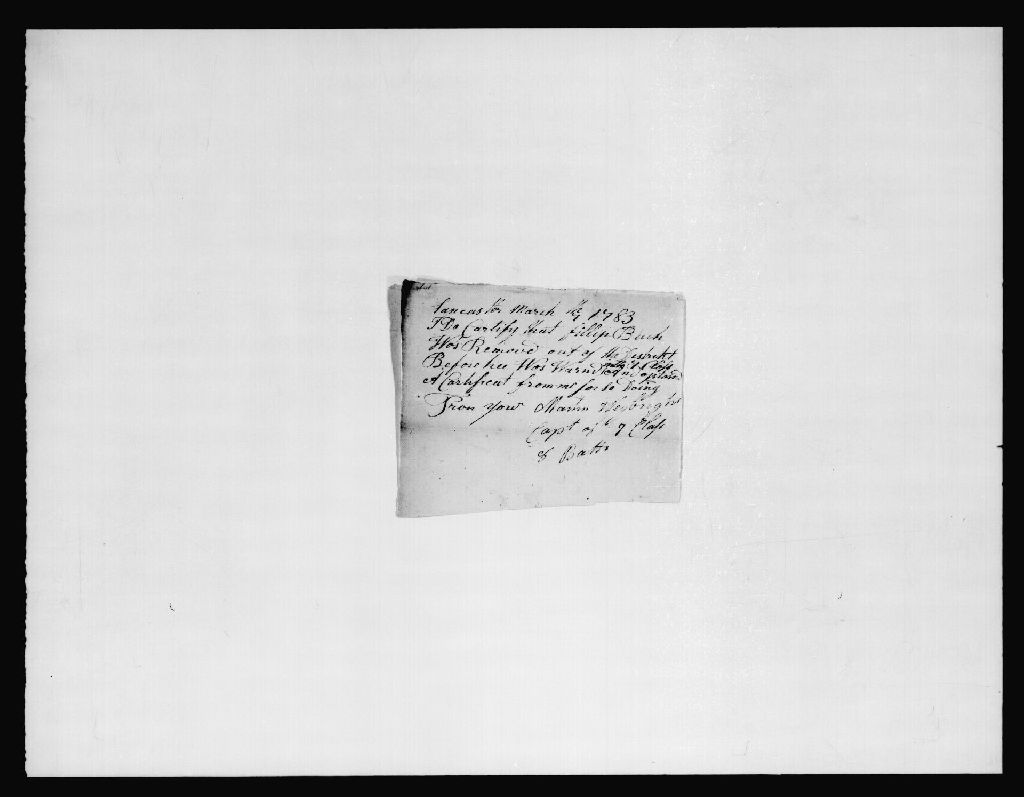 Lancaster March th 7 1783
I Do Cartify that fillip Buch
Was Remove out of the Destrict
Before hee Was Warnd
A Cartificat from me for so Doing
from your Martin Weybright
Capt of t 7 Class
8 Battn